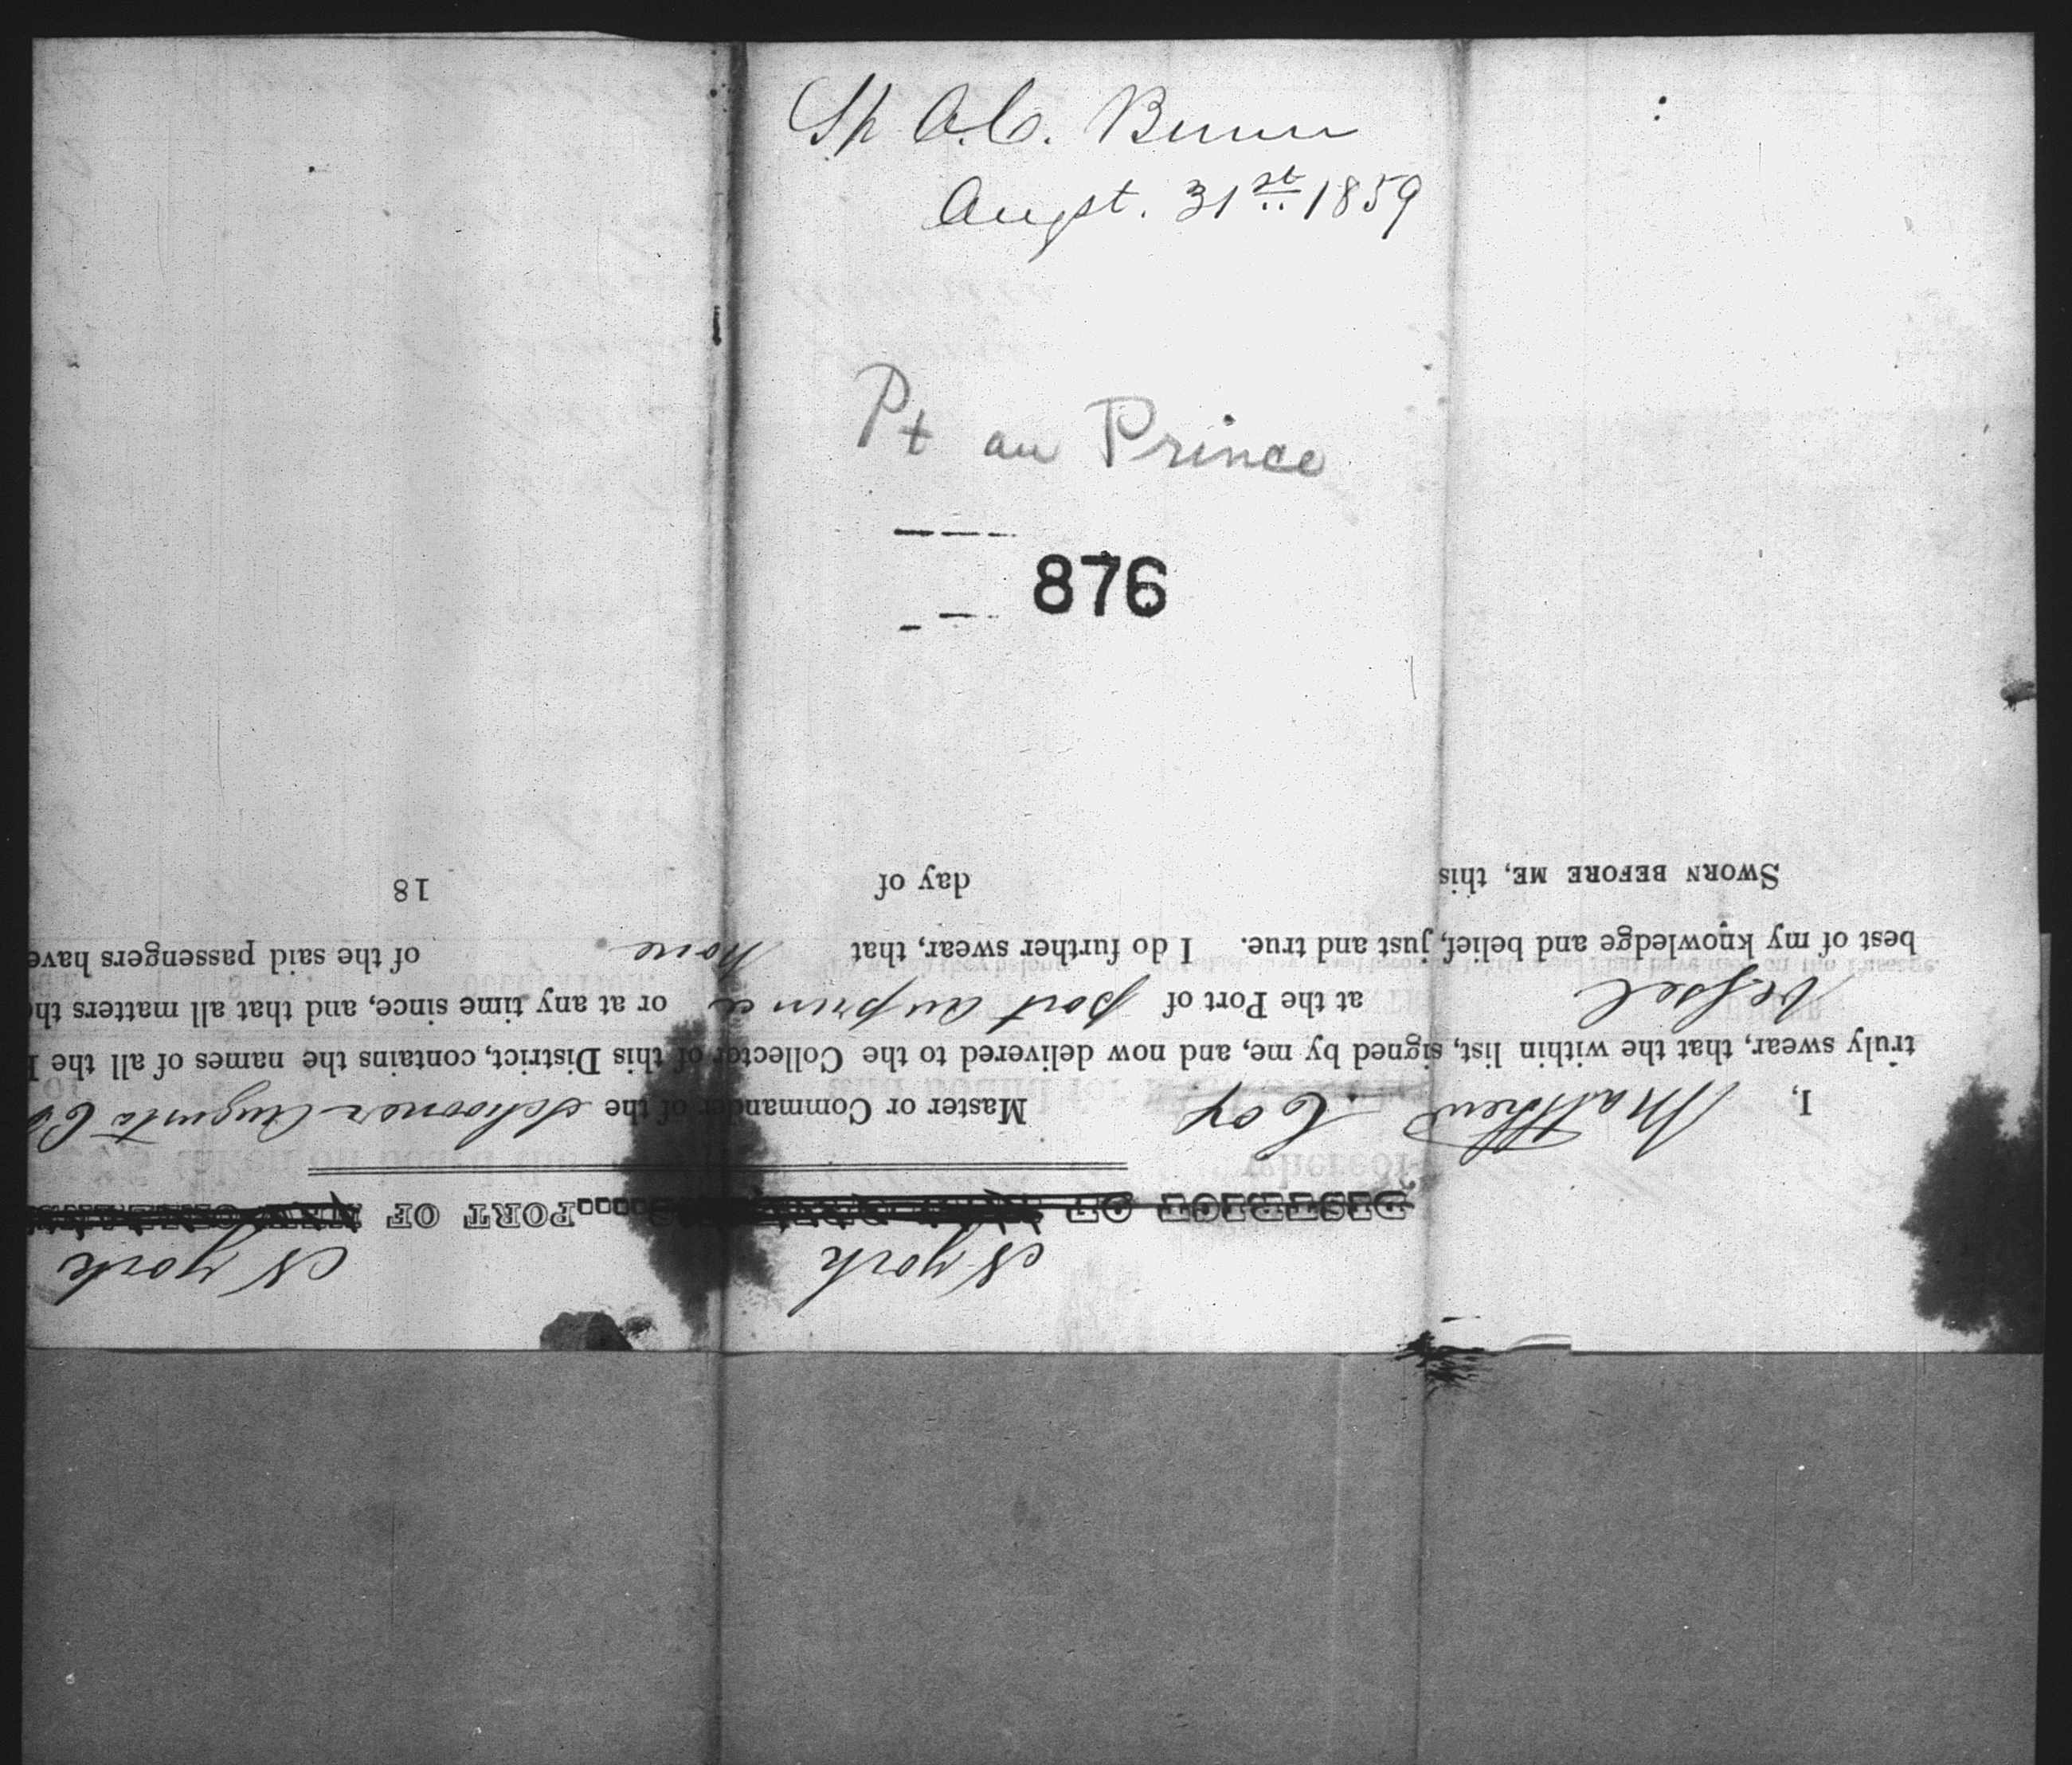 Sh A.C. Brewer
Augst. 31st 1859
Pt au Prince
876
DISTRICT OF N york PORT OF N york
I, Matthew Coy Master or Commander of the Schooner Augusta C
truly swear, that the within list, signed by me, and now delivered to the Collector of this District, contains the names of all the
vessel at the Port of port auprince or at any time since, and that all matters the
best of my knowledge and belief, just and true. I do further swear, that none of the said passengers have
SWORN BEFORE ME, this day of 18